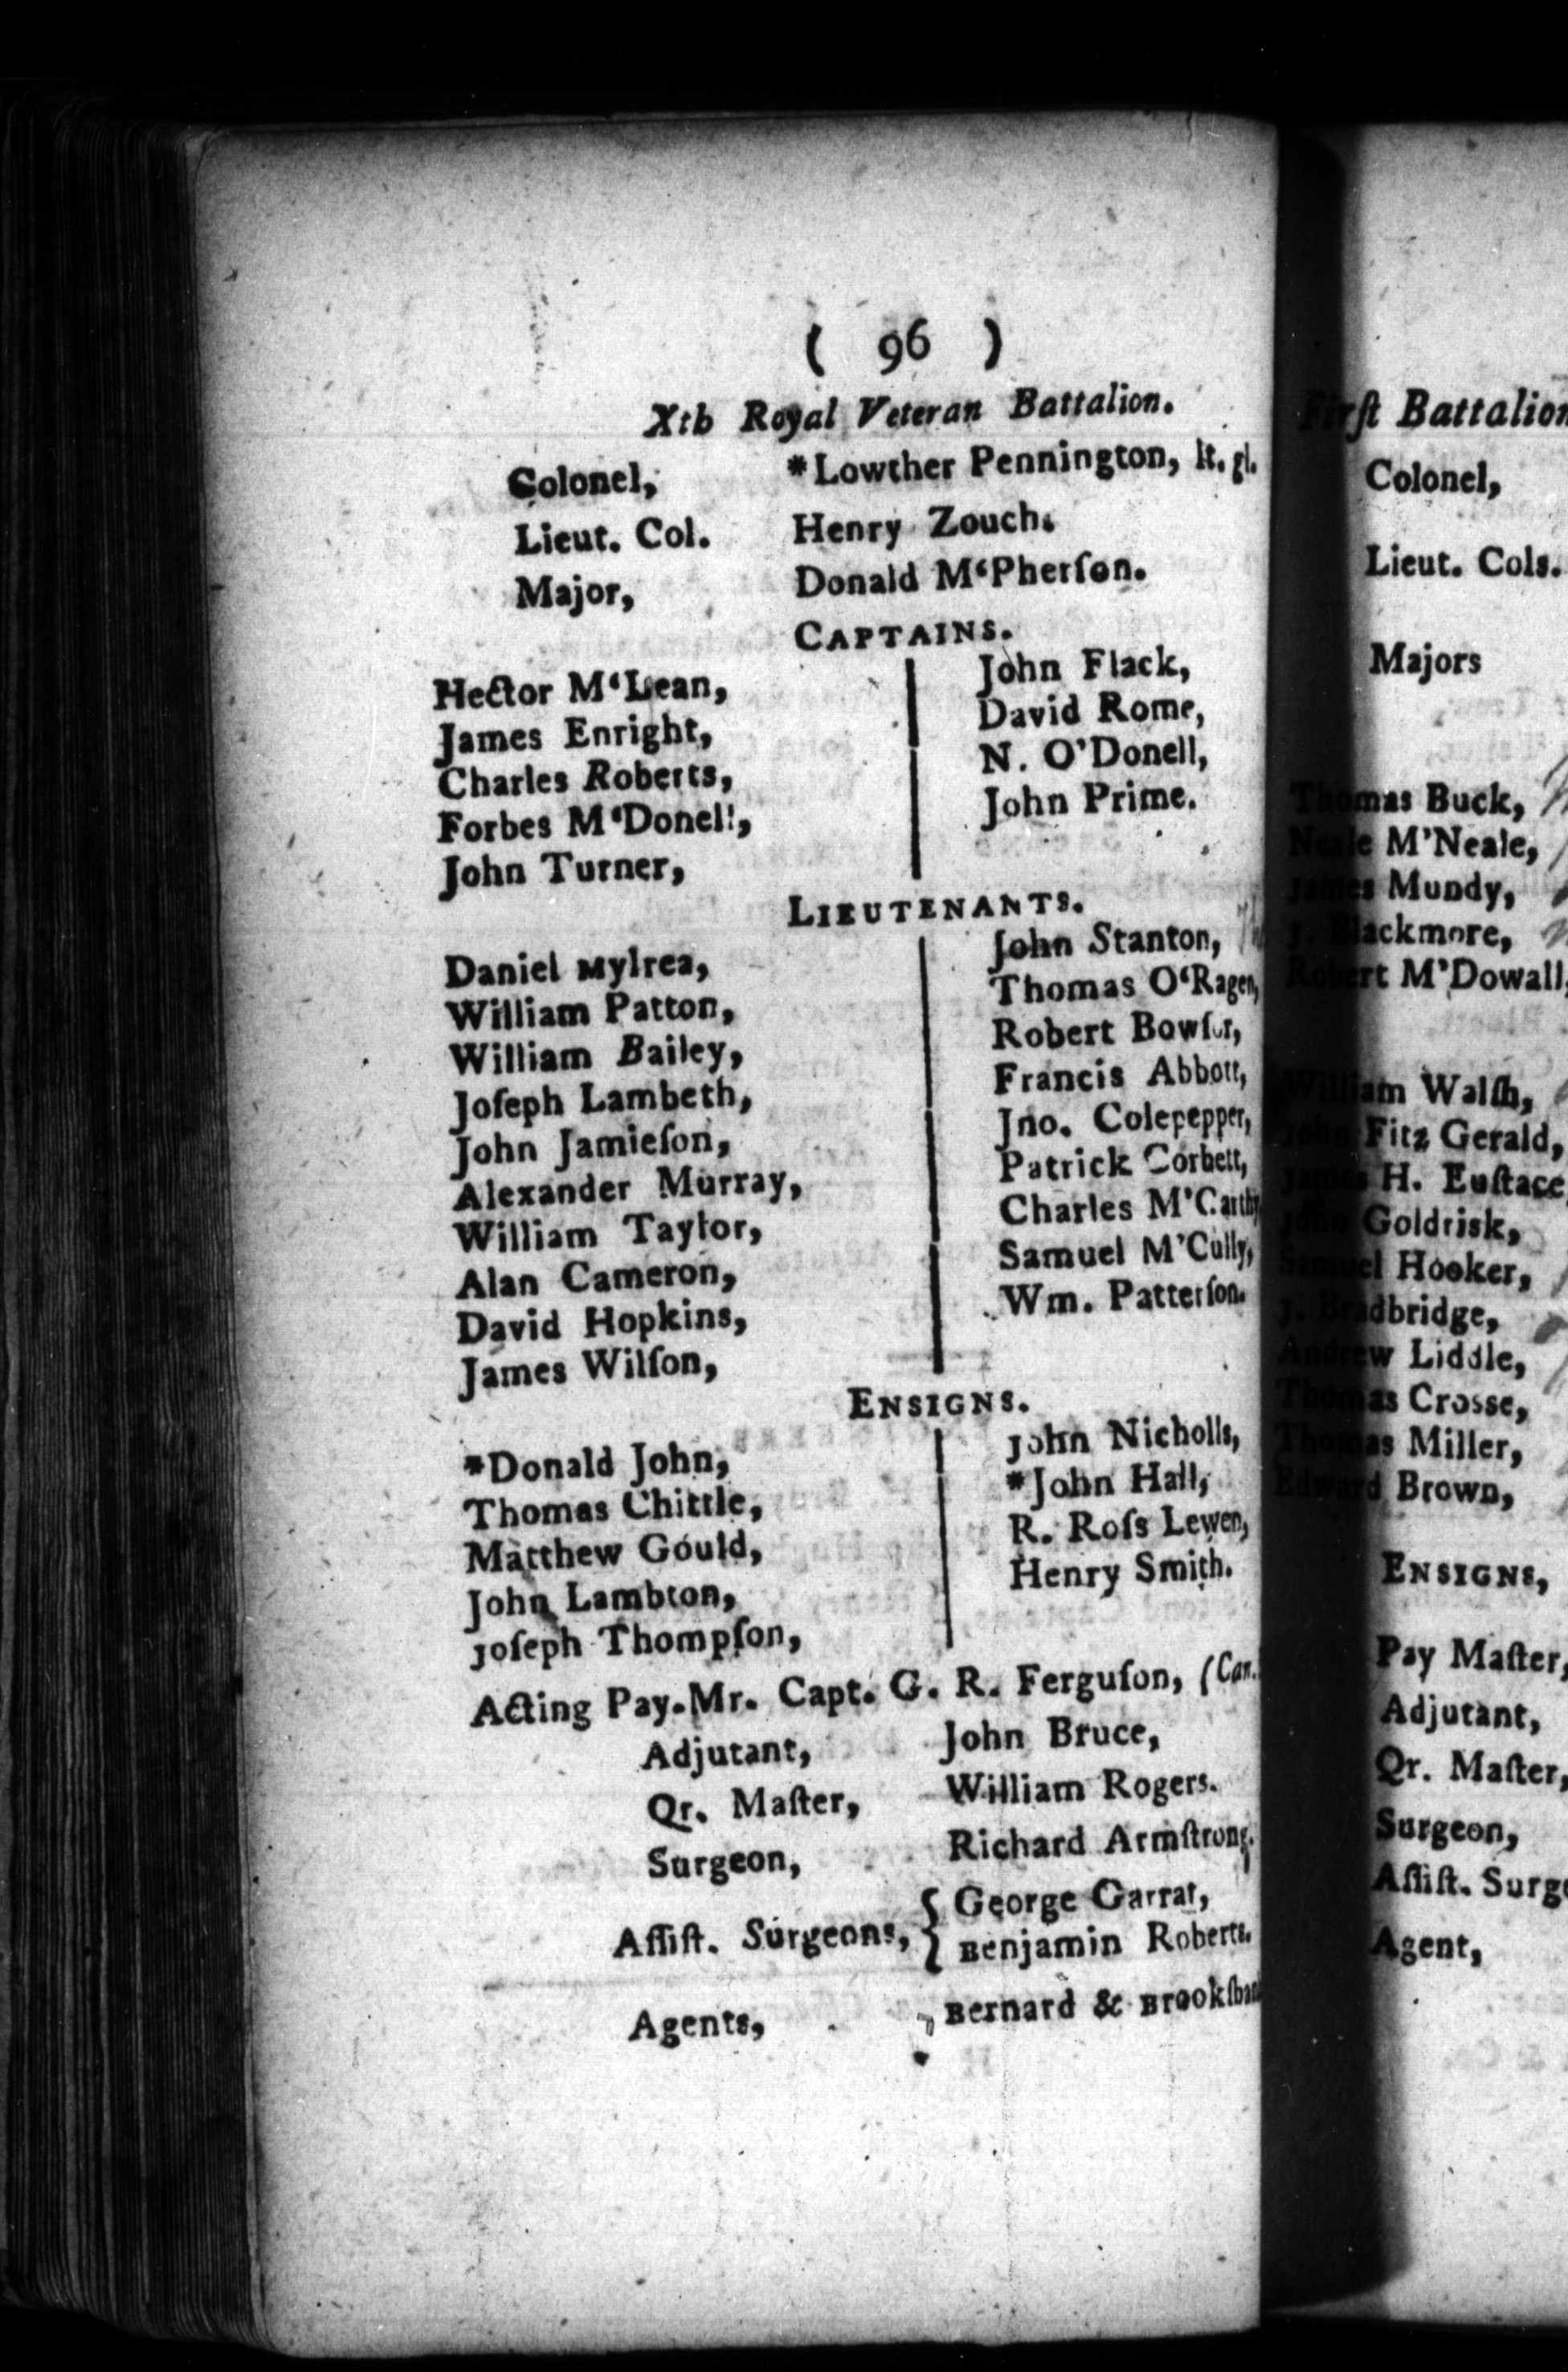 ( 96 )
Xth Royal Veteran Battalion.
Colonel, *Lowther Pennington, lt. gl.
Lieut. Col. Henry Zouch.
Major, Donald M‘Pherſon.
CAPTAINS.
Hector M‘Lean,
James Enright,
Charles Roberts,
Forbes M‘Donell,
John Turner,
John Flack,
David Rome,
N. O’Donell,
John Prime.
LIEUTENANTS.
Daniel Mylrea,
William Patton,
William Bailey,
Joſeph Lambeth,
John Jamieſon,
Alexander Murray,
William Taylor,
Alan Cameron,
David Hopkins,
James Wilſon,
John Stanton,
Thomas O‘Ragen,
Robert
Francis Abbott,
Jno. Colepepper,
Patrick Corbett,
Charles M’Carthy
Samuel M’Cully,
Wm. Patterſon.
ENSIGNS.
*Donald John,
Thomas Chittle,
Matthew Gould,
John Lambton,
Joſeph Thompſon,
John Nicholls,
*John Hall,
R. Roſs Lewen,
Henry Smith.
Acting Pay.Mr. Capt. G. R. Ferguſon, (Can.
Adjutant, John Bruce,
Qr. Maſter, William Rogers.
Surgeon, Richard Armſtrong.
Aſſiſt. Surgeons, { George Garrat,
Benjamin Roberts.
Agents, Bernard & Brookſbank
Firſt Battalion
Colonel,
Lieut. Cols.
Majors
Thomas Buck,
Neale M’Neale,
James Mundy,
J. Blackmore,
Robert M’Dowall,
William Walſh,
John Fitz Gerald,
James H. Euſtace,
John Goldrisk,
Samuel Hooker,
J. Bradbridge,
Andrew Liddle,
Thomas Crosse,
Thomas Miller,
Edward Brown,
ENSIGNS,
Pay Maſter,
Adjutant,
Qr. Maſter,
Surgeon,
Aſſiſt. Surge
Agent,